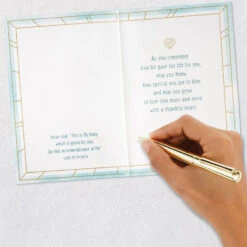 Jesus said, "This is My body,
which is given for you.
Do this in remembrance of Me."
LUKE 22:19 HCSB
As you remember
how He gave His life for you,
may you know
how special you are to Him
and may you grow
to love Him more and more
with a thankful heart.